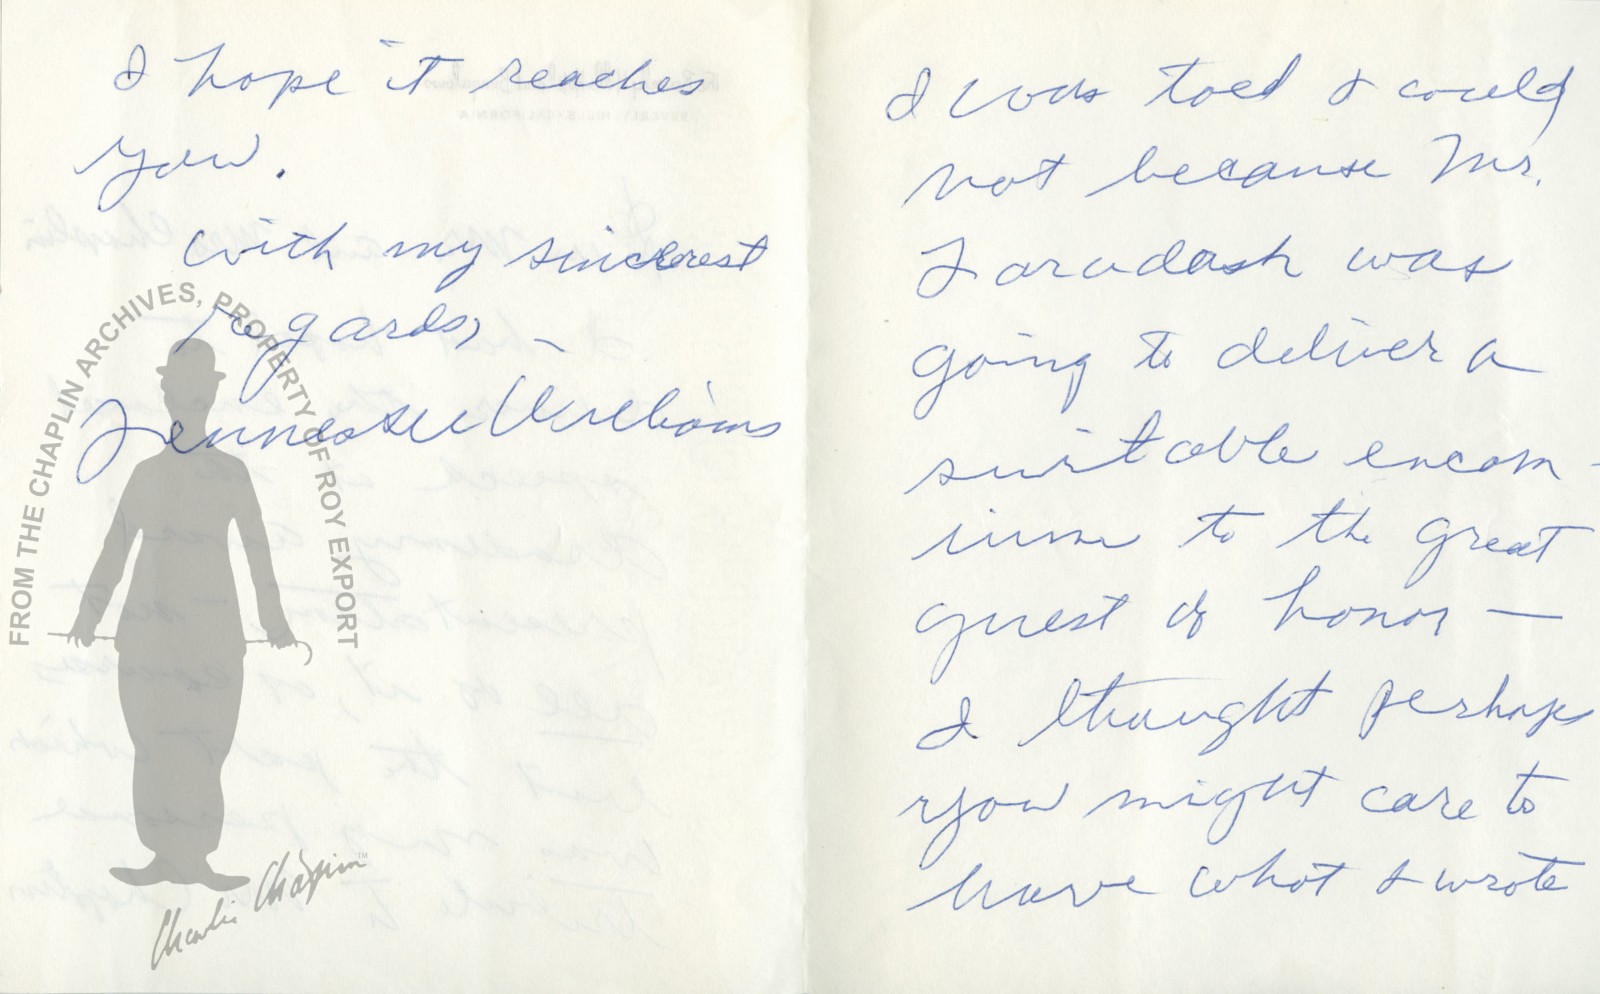 I hope it reaches
you.
with my sincerest
regards, —
Tennessee Williams
FROM THE CHAPLIN ARCHIVES, PROPERTY OF ROY EXPORT
Charlie Chaplin™
I was told I could
not because Mr.
Taradash was
going to deliver a
suitable encom-
ium to the great
guest of honor —
I thought perhaps
you might care to
have what I wrote